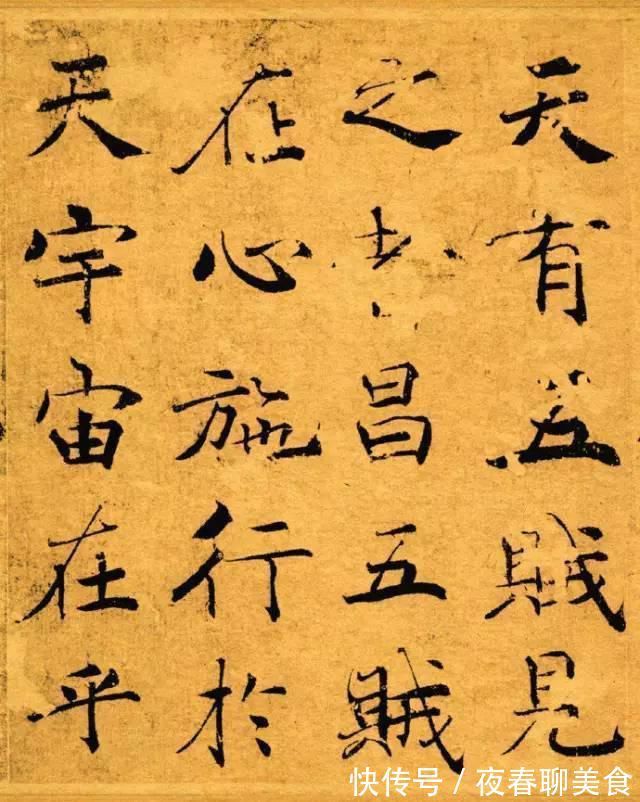 天有五賊見
之者昌五賊
在心施行於
天宇宙在乎
快传号/夜春聊美食